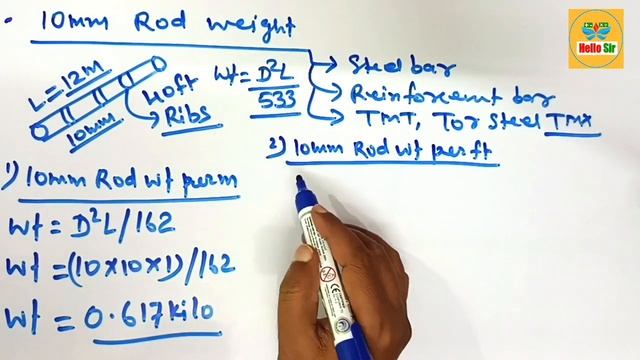 10mm Rod weight
L = 12m
10mm
40ft
Ribs
wt = D²L/533
Steel bar
Reinforcemt bar
TMT, Tor Steel TMX
1) 10mm Rod wt per m
wt = D²L/162
wt = (10×10×1)/162
wt = 0.617 kilo
2) 10mm Rod wt per ft
Hello Sir